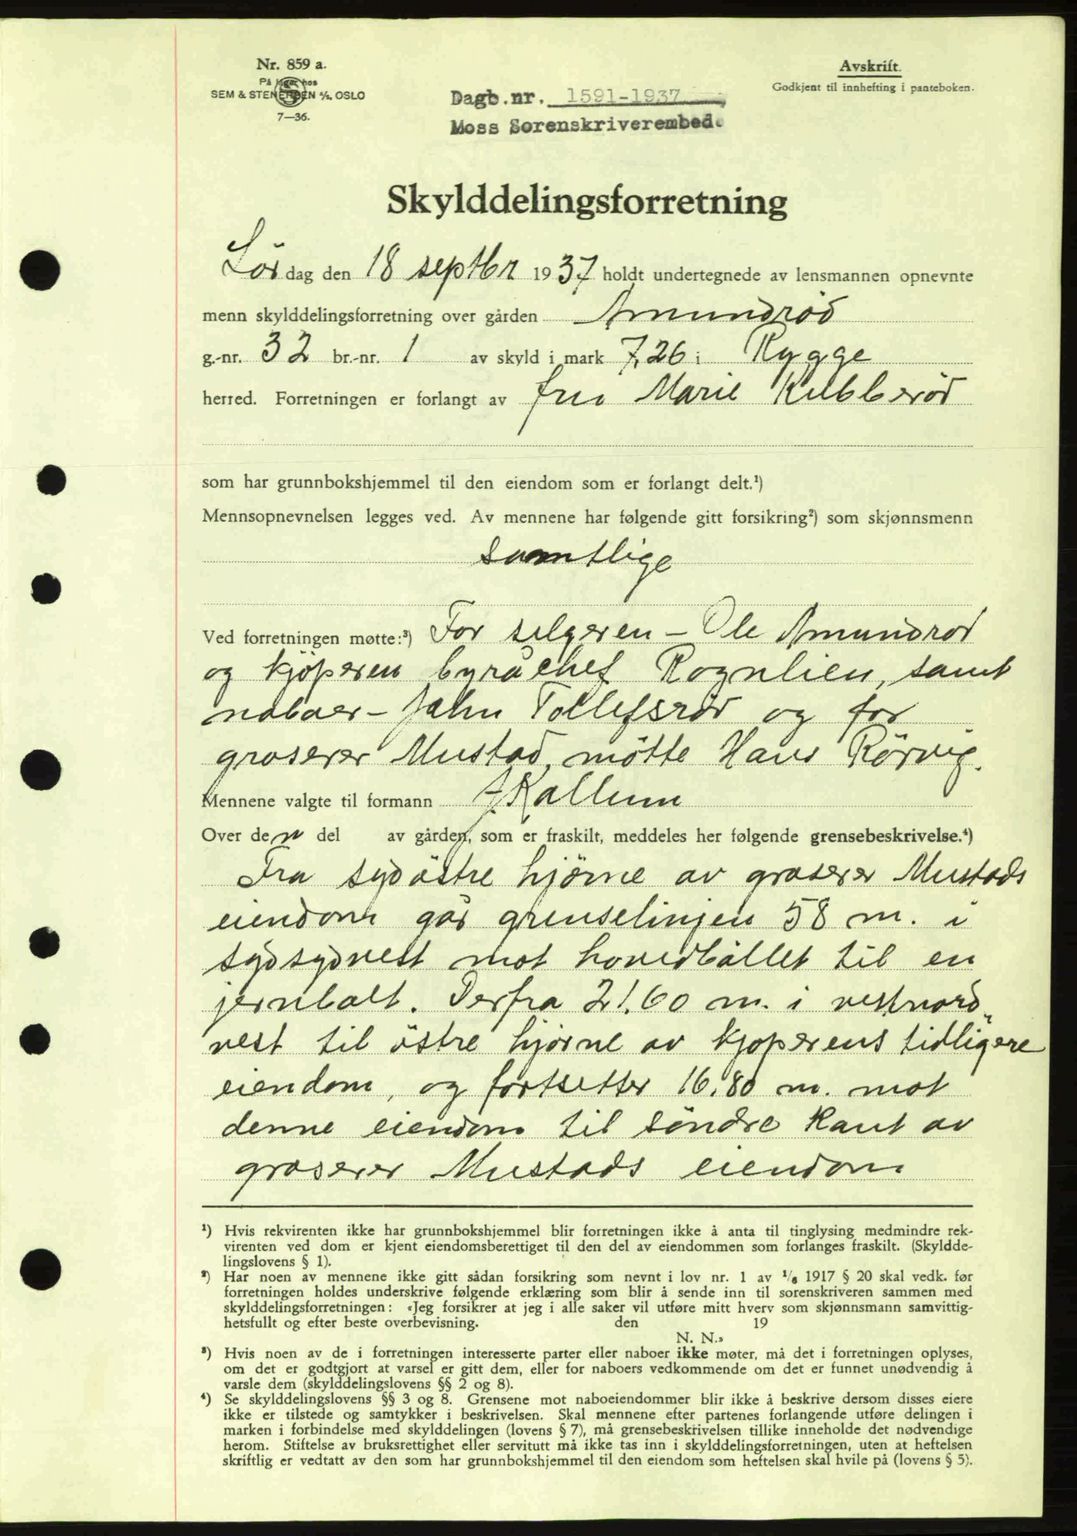 Nr. 859 a.
På lager hos
SEM & STENERSEN A/S, OSLO
7—36.
Avskrift.
Godkjent til innhefting i panteboken.
Dagb.nr. 1591-1937
Moss Sorenskriverembede
Skylddelingsforretning
Lördag den 18 septbr 1937 holdt undertegnede av lensmannen opnevnte
menn skylddelingsforretning over gården Amundrød
g.-nr. 32 br.-nr. 1 av skyld i mark 7,26 i Rygge
herred. Forretningen er forlangt av fru Marie Kubberød
som har grunnbokshjemmel til den eiendom som er forlangt delt.¹)
Mennsopnevnelsen legges ved. Av mennene har følgende gitt forsikring²) som skjønnsmenn
samtlige
Ved forretningen møtte:³) For selgeren – Ole Amundrød
og kjöperen byråchef Rognlien, samt
naboer – John Tollefsrød og for
groserer Mustad, mötte Hans Rörvig.
Mennene valgte til formann J. Kallum
Over den del av gården, som er fraskilt, meddeles her følgende grensebeskrivelse.⁴)
Fra sydöstre hjörne av groserer Mustads
eiendom går grenselinjen 58 m. i
sydsydvest mot hovedbållet til en
jernbolt. Derfra 21.60 m. i vestnord„
vest til östre hjörne av kjöperens tidligere
eiendom, og fortsetter 16.80 m. mot
denne eiendom til söndre kant av
groserer Mustads eiendom
¹) Hvis rekvirenten ikke har grunnbokshjemmel blir forretningen ikke å anta til tinglysing medmindre rek-
virenten ved dom er kjent eiendomsberettiget til den del av eiendommen som forlanges fraskilt. (Skyldde-
lingslovens § 1).
²) Har noen av mennene ikke gitt sådan forsikring som nevnt i lov nr. 1 av 1/6 1917 § 20 skal vedk. før
forretningen holdes underskrive følgende erklæring som blir å sende inn til sorenskriveren sammen med
skylddelingsforretningen: «Jeg forsikrer at jeg i alle saker vil utføre mitt hverv som skjønnsmann samvittig-
hetsfullt og efter beste overbevisning. den 19
N. N.»
³) Hvis noen av de i forretningen interesserte parter eller naboer ikke møter, må det i forretningen oplyses,
om det er godtgjort at varsel er gitt dem, eller for naboers vedkommende om det er funnet unødvendig å
varsle dem (skylddelingslovens §§ 2 og 8).
⁴) Se skylddelingslovens §§ 3 og 8. Grensene mot naboeiendommer blir ikke å beskrive dersom disses eiere
ikke er tilstede og samtykker i beskrivelsen. Skal mennene efter partenes forlangende utføre delingen i
marken i forbindelse med skylddelingen (lovens § 7), må grensebeskrivelsen tillike inneholde det nødvendige
herom. Stiftelse av bruksrettighet eller servitutt må ikke tas inn i skylddelingsforretningen, uten at heftelsen
skriftlig er vedtatt av den som har grunnbokshjemmel til den eiendom som heftelsen skal hvile på (lovens § 5).